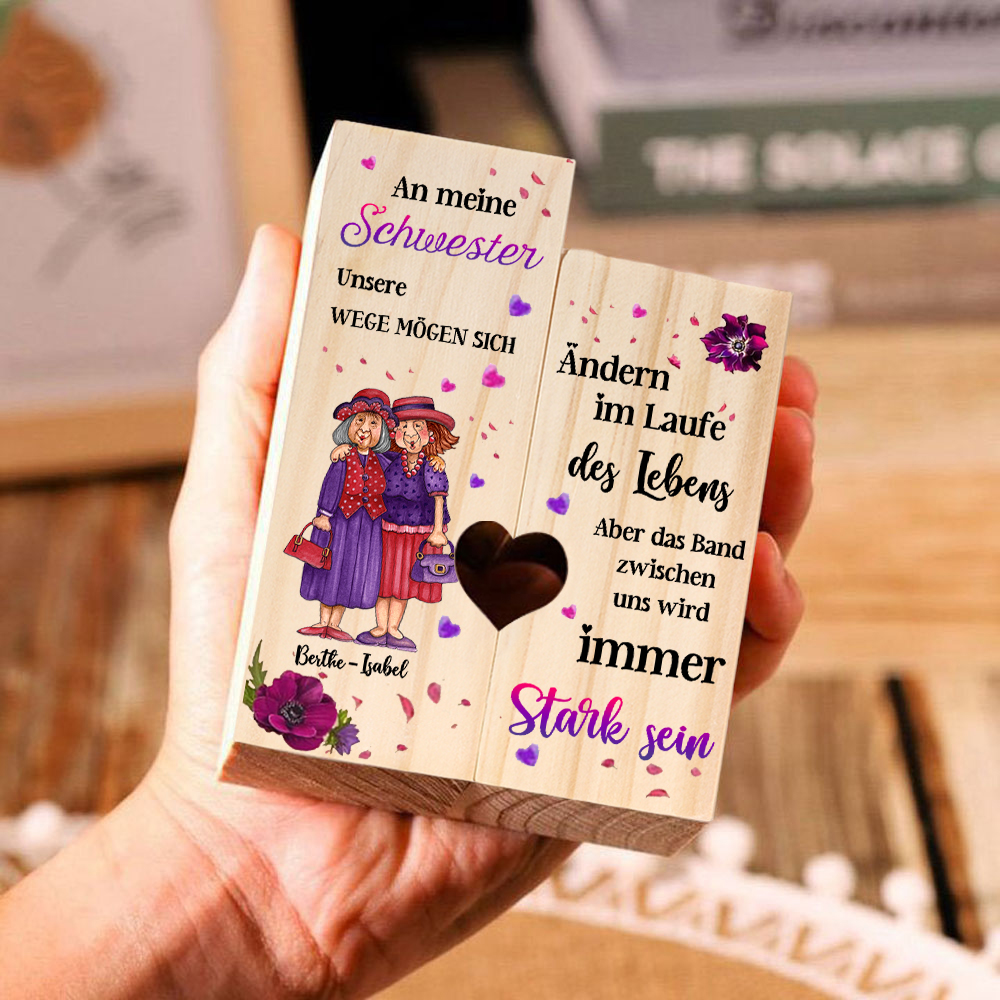 An meine
Schwester
Unsere
WEGE MÖGEN SICH
Berthe – Isabel
Ändern
im Laufe
des Lebens
Aber das Band
zwischen
uns wird
immer
Stark sein
THE SOLACE